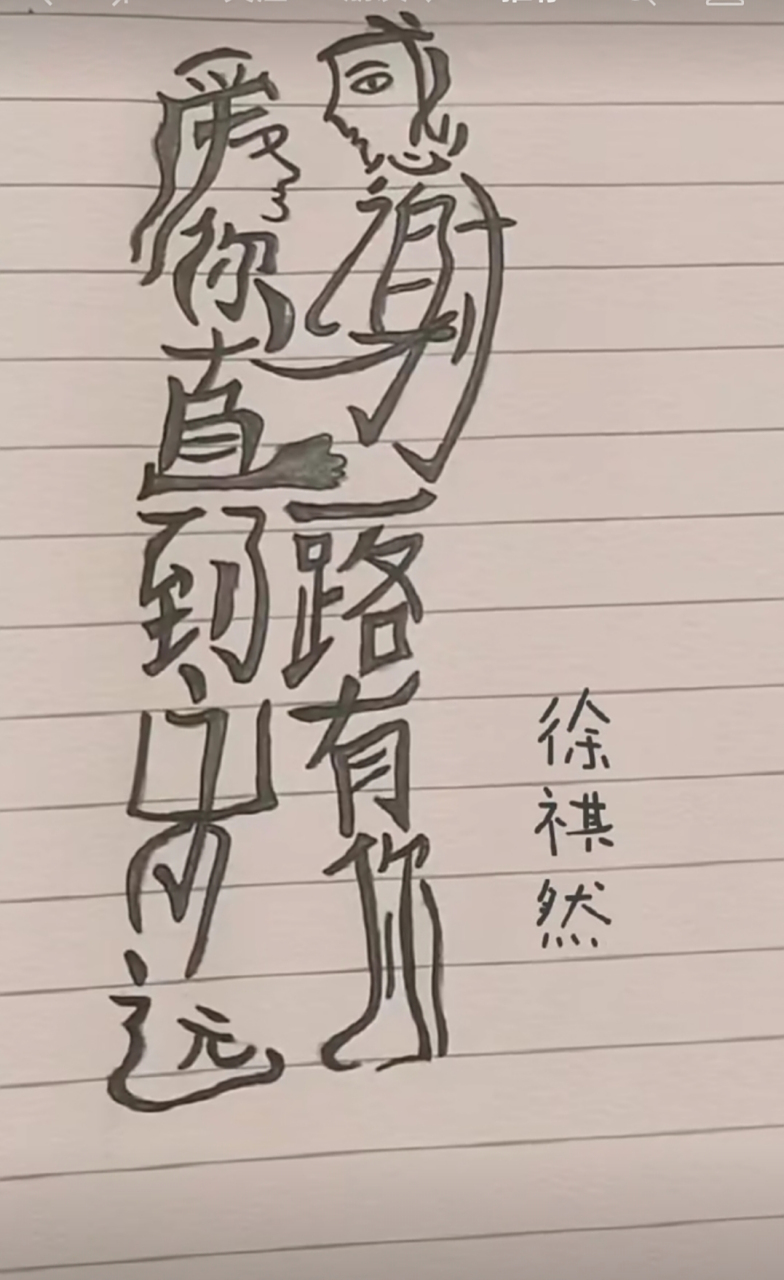 徐祺然
感谢一路有你
爱你直到永远